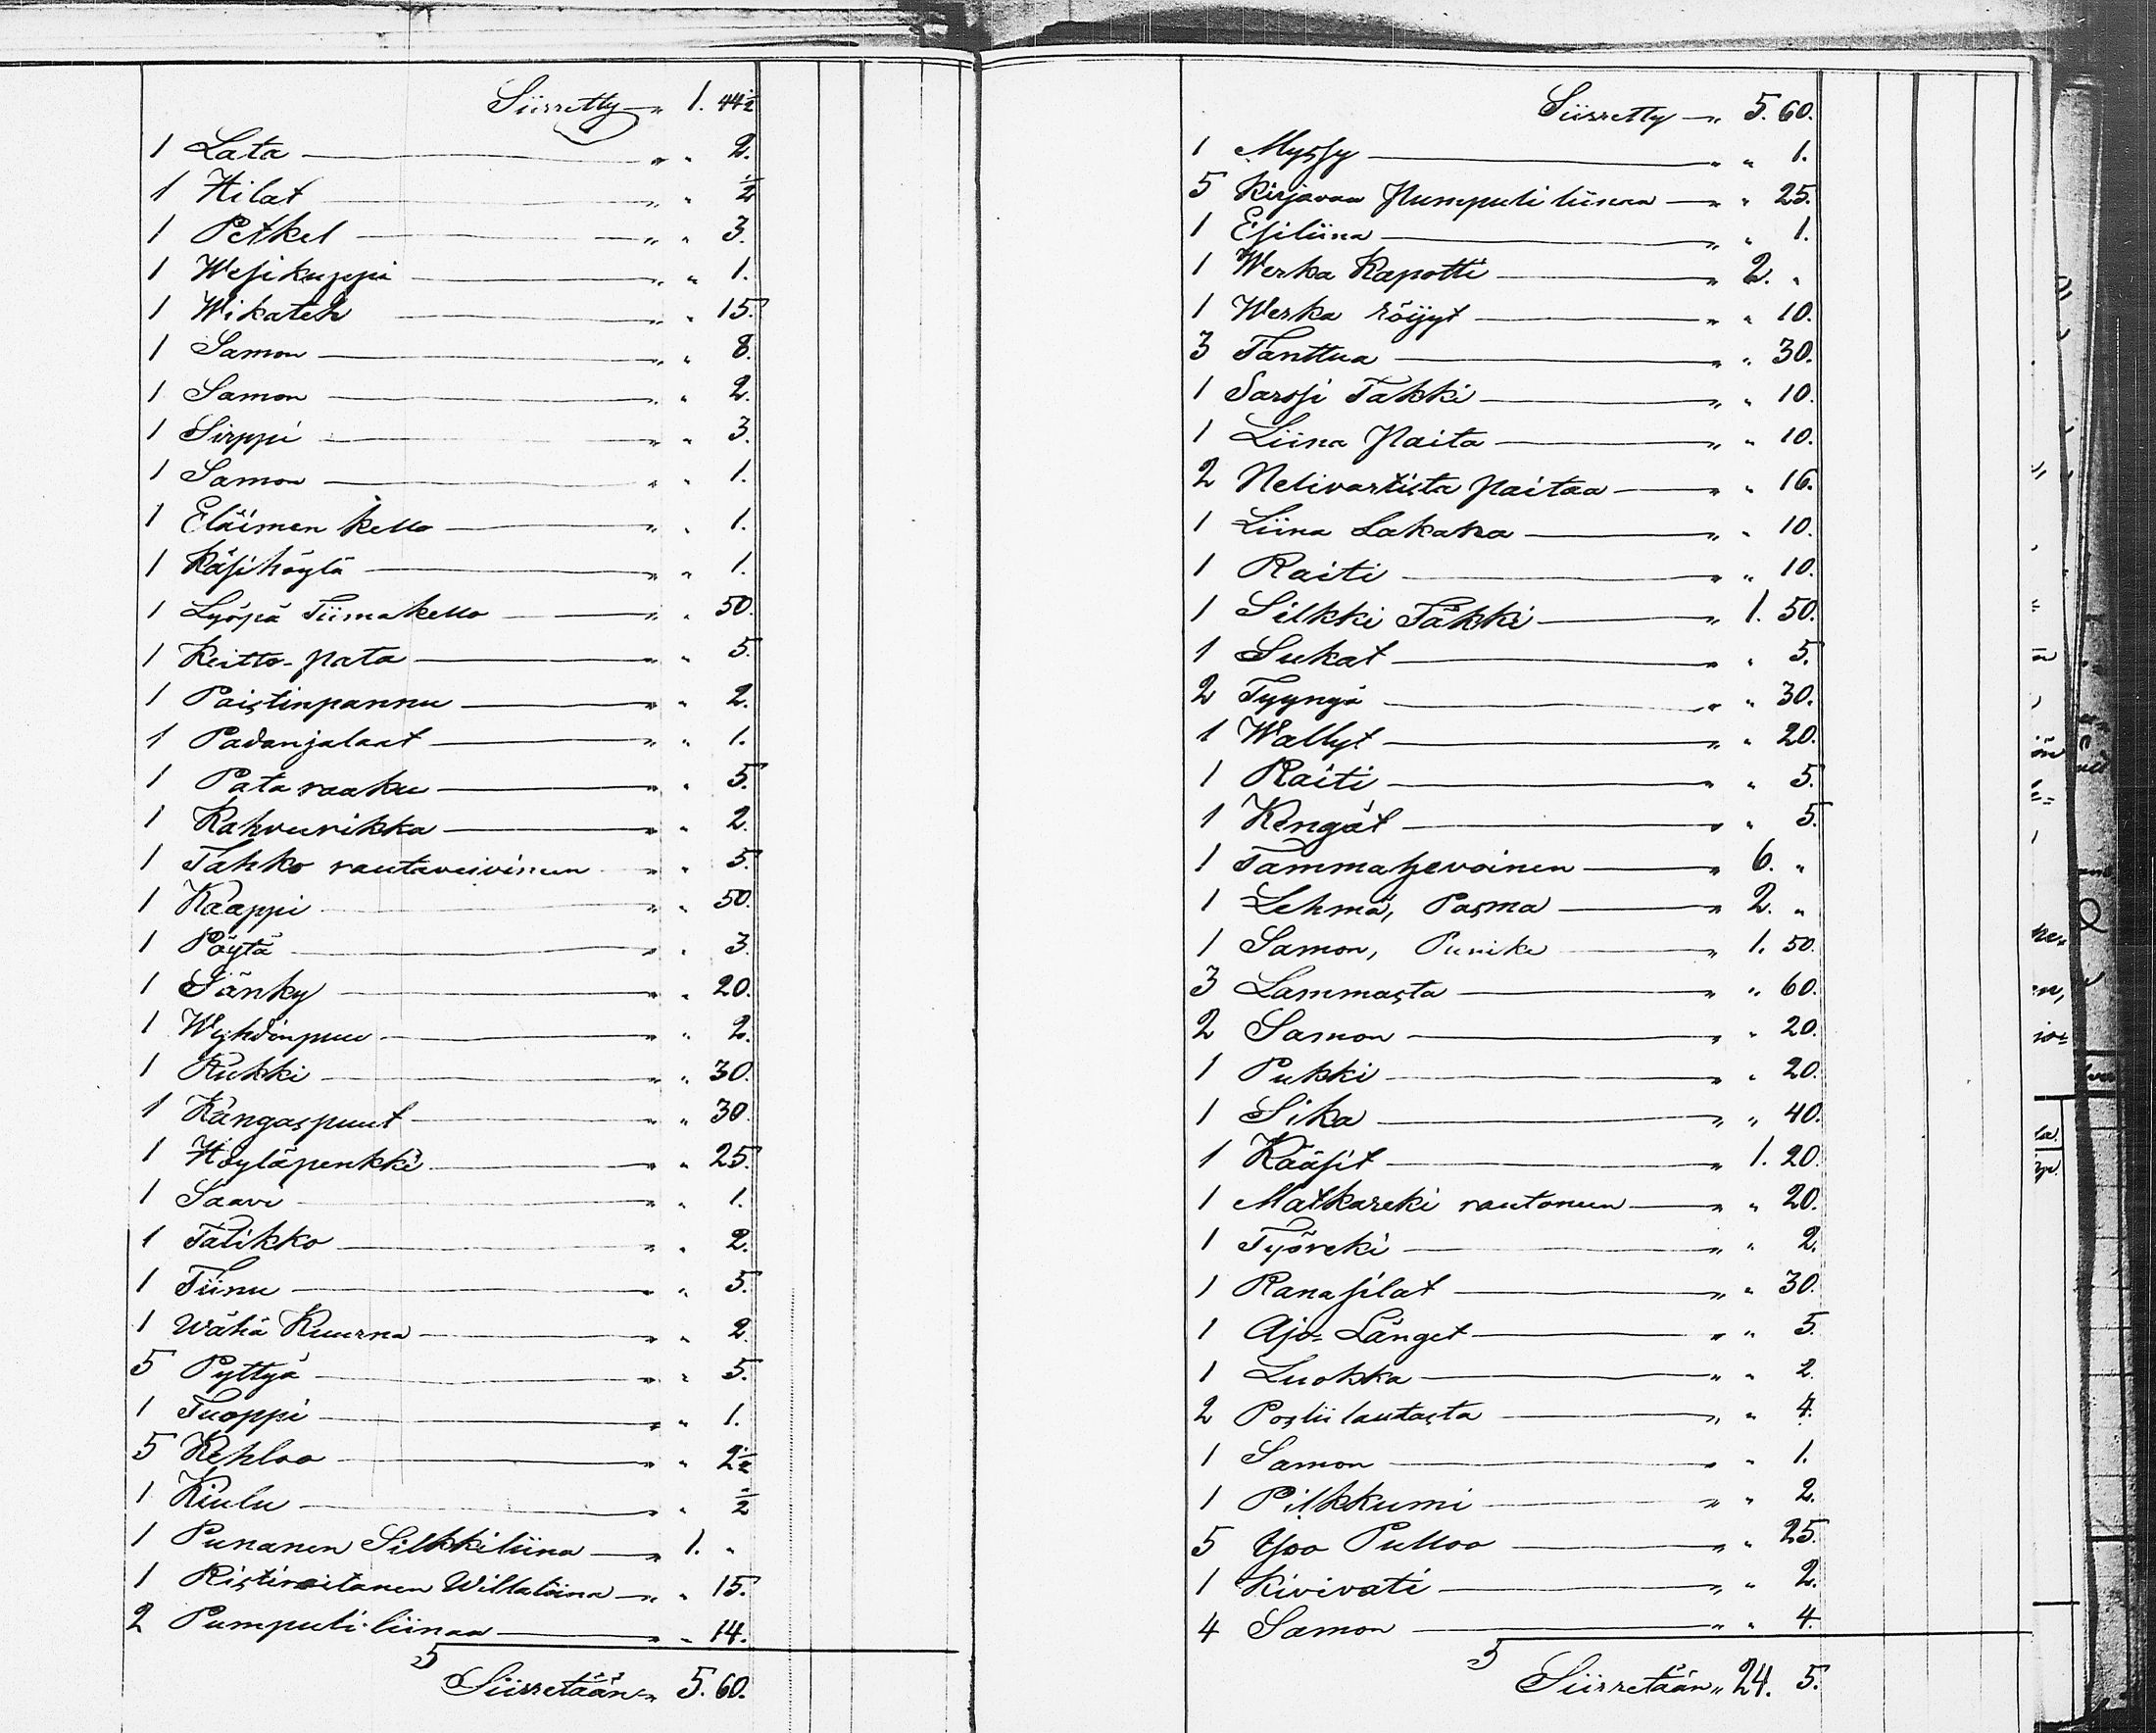 Siirretty " 1. 44½
1 Lata " " 2.
1 Hilat " " ½
1 Petkel " " 3.
1 Wesikuppi " " 1.
1 Wikateh " " 15.
1 Samon " " 8.
1 Samon " " 2.
1 Sirppi " " 3.
1 Samon " " 1.
1 Eläimen kello " " 1.
1 Käsihöylä " " 1.
1 Lyöpä Tiimakello " " 50.
1 Keitto-pata " " 5.
1 Paistinpannu " " 2.
1 Padanjalaat " " 1.
1 Pata raaku " " 5.
1 Kahvurikka " " 2.
1 Tahko rautaveivineen " " 5.
1 Kaappi " " 50.
1 Pöytä " " 3.
1 Sänky " " 20.
1 Wyhdinpuu " " 2.
1 Rukki " " 30.
1 Kangaspuut " " 30.
1 Höyläpenkki " " 25.
1 Saavi " " 1.
1 Talikko " " 2.
1 Tiinu " " 5.
1 Wähä Kuurna " " 2.
5 Pyttyä " " 5.
1 Tuoppi " " 1.
5 Kehloa " " 2½
1 Kiulu " " ½
1 Punanen Silkkiliina " 1. "
1 Ristiraitanen Willaliina " " 15.
2 Pumpuli-liinaa " " 14.
Siirretään " 5. 60.
Siirretty " 5. 60.
1 Myssy " " 1.
5 Kirjavaa Pumpuli liinaa " " 25.
1 Esiliina " " 1.
1 Werka Kapotti " 2. "
1 Werka röijyt " " 10.
3 Tanttua " " 30.
1 Sarssi Takki " " 10.
1 Liina Paita " " 10.
2 Nelivartista Paitaa " " 16.
1 Liina Lakana " " 10.
1 Raiti " " 10.
1 Silkki Täkki " 1. 50.
1 Sukat " " 5.
2 Tyynyä " " 30.
1 Wallyt " " 20.
1 Raiti " " 5.
1 Kengät " " 5.
1 Tammahevoinen " 6. "
1 Lehmä, Pasma " 2. "
1 Samon, Punike " 1. 50.
3 Lammasta " " 60.
2 Samon " " 20.
1 Pukki " " 20.
1 Sika " " 40.
1 Kääsit " 1. 20.
1 Matkareki rautoneen " " 20.
1 Työreki " " 2.
1 Ranasilat " " 30.
1 Ajo-Länget " " 5.
1 Luokka " " 2.
2 Posliilautasta " " 4.
1 Samon " " 1.
1 Pilkkumi " " 2.
5 Isoa Pulloa " " 25.
1 Kivivati " " 2.
4 Samon " " 4.
Siirretään " 24. 5.